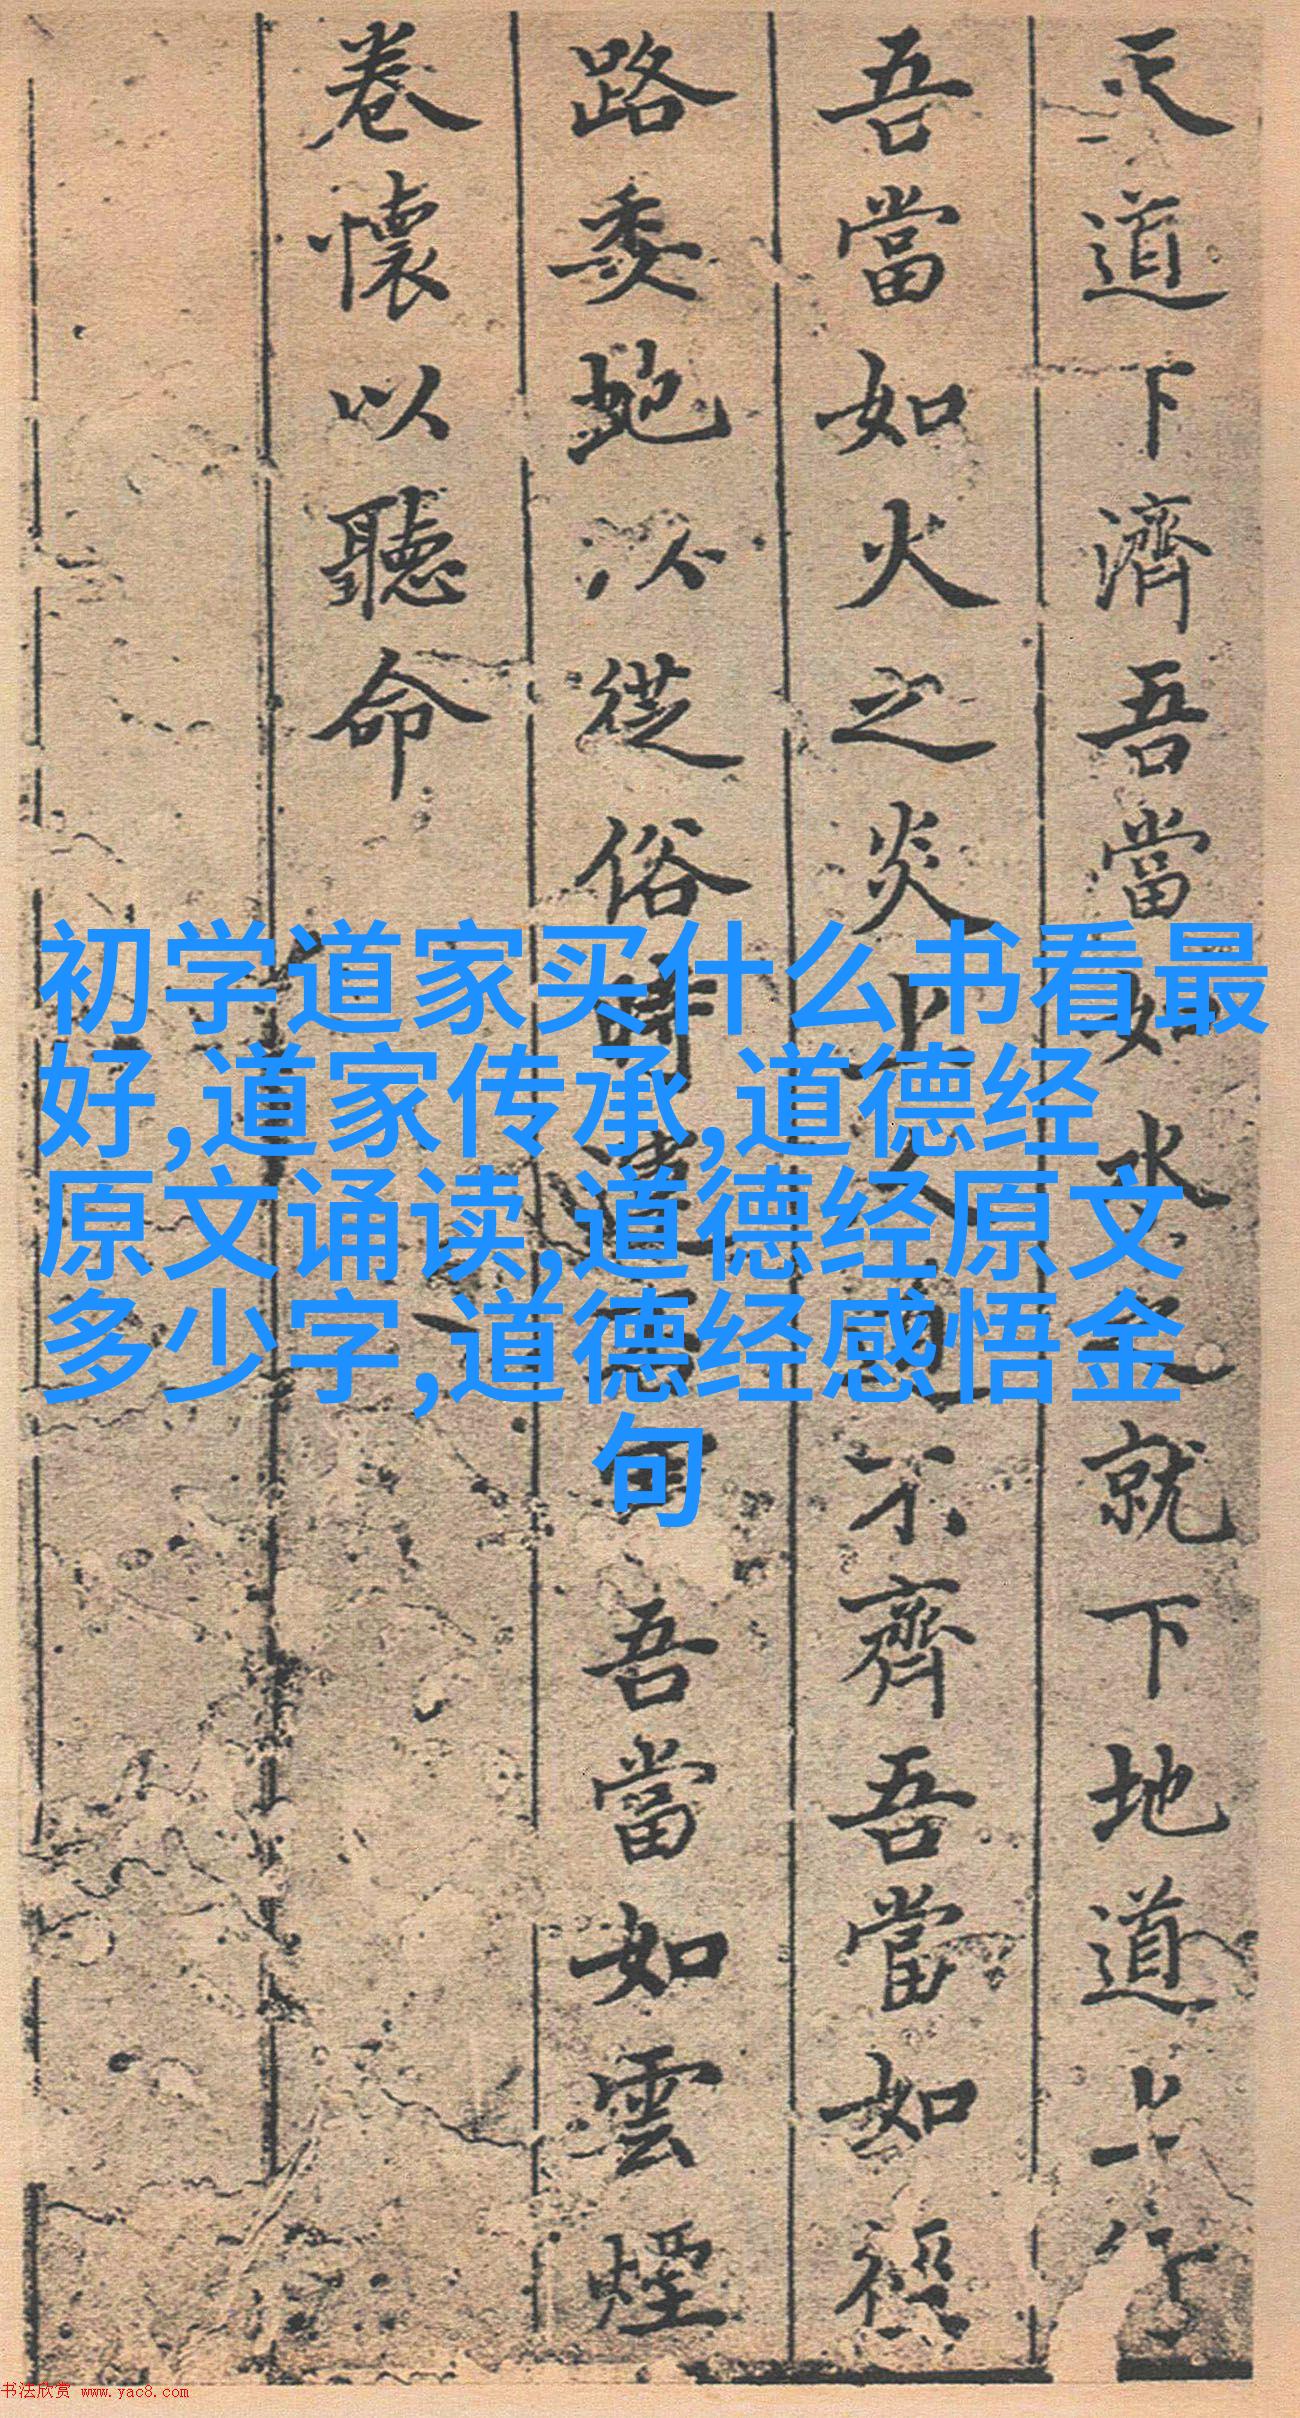 天道下濟吾當如水之就下地道上行
吾當如火之炎上人 不齊吾當如徑
路委虵以從俗時 吾當如雲煙
卷懷以聽命
初学道家买什么书看最
好,道家传承,道德经
原文诵读,道德经原文
多少字,道德经感悟金
句
书法欣赏 www.yac8.com